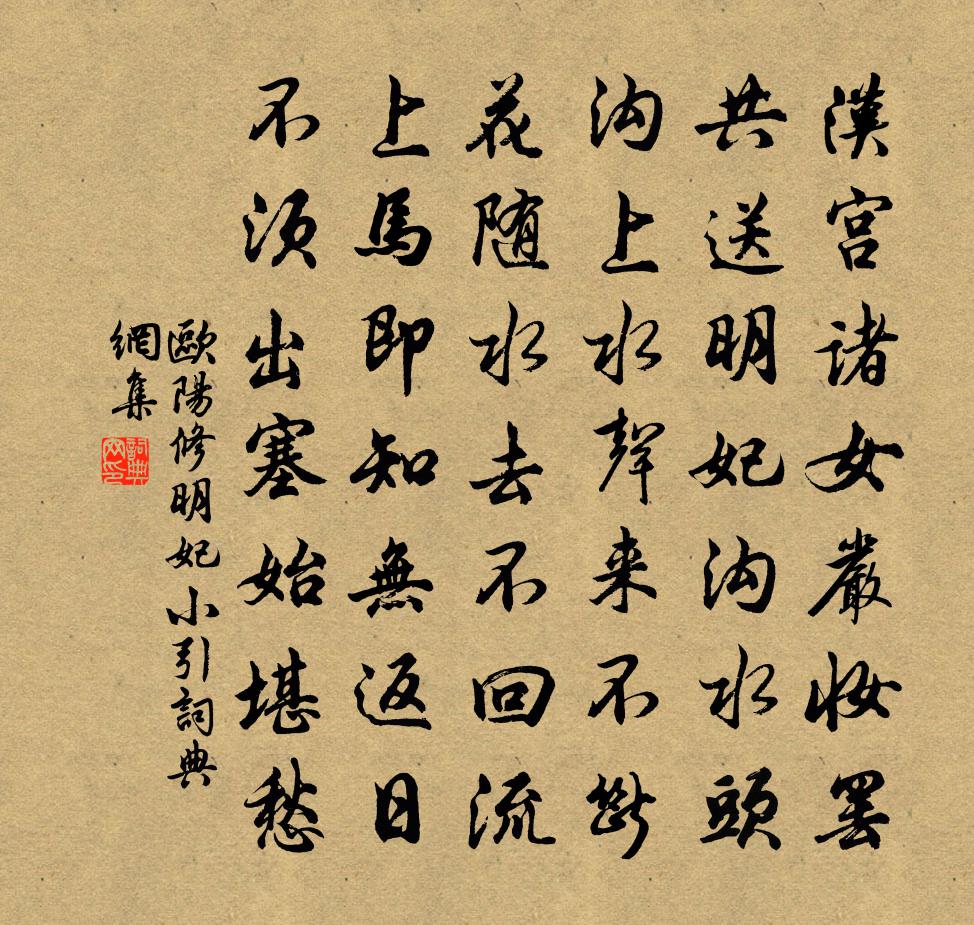 漢宮諸女嚴妝罷
共送明妃沟水頭
沟上水聲来不斷
花随水去不回流
上馬即知無返日
不須出塞始堪愁
歐陽修明妃小引詞典
網集
詞典网印